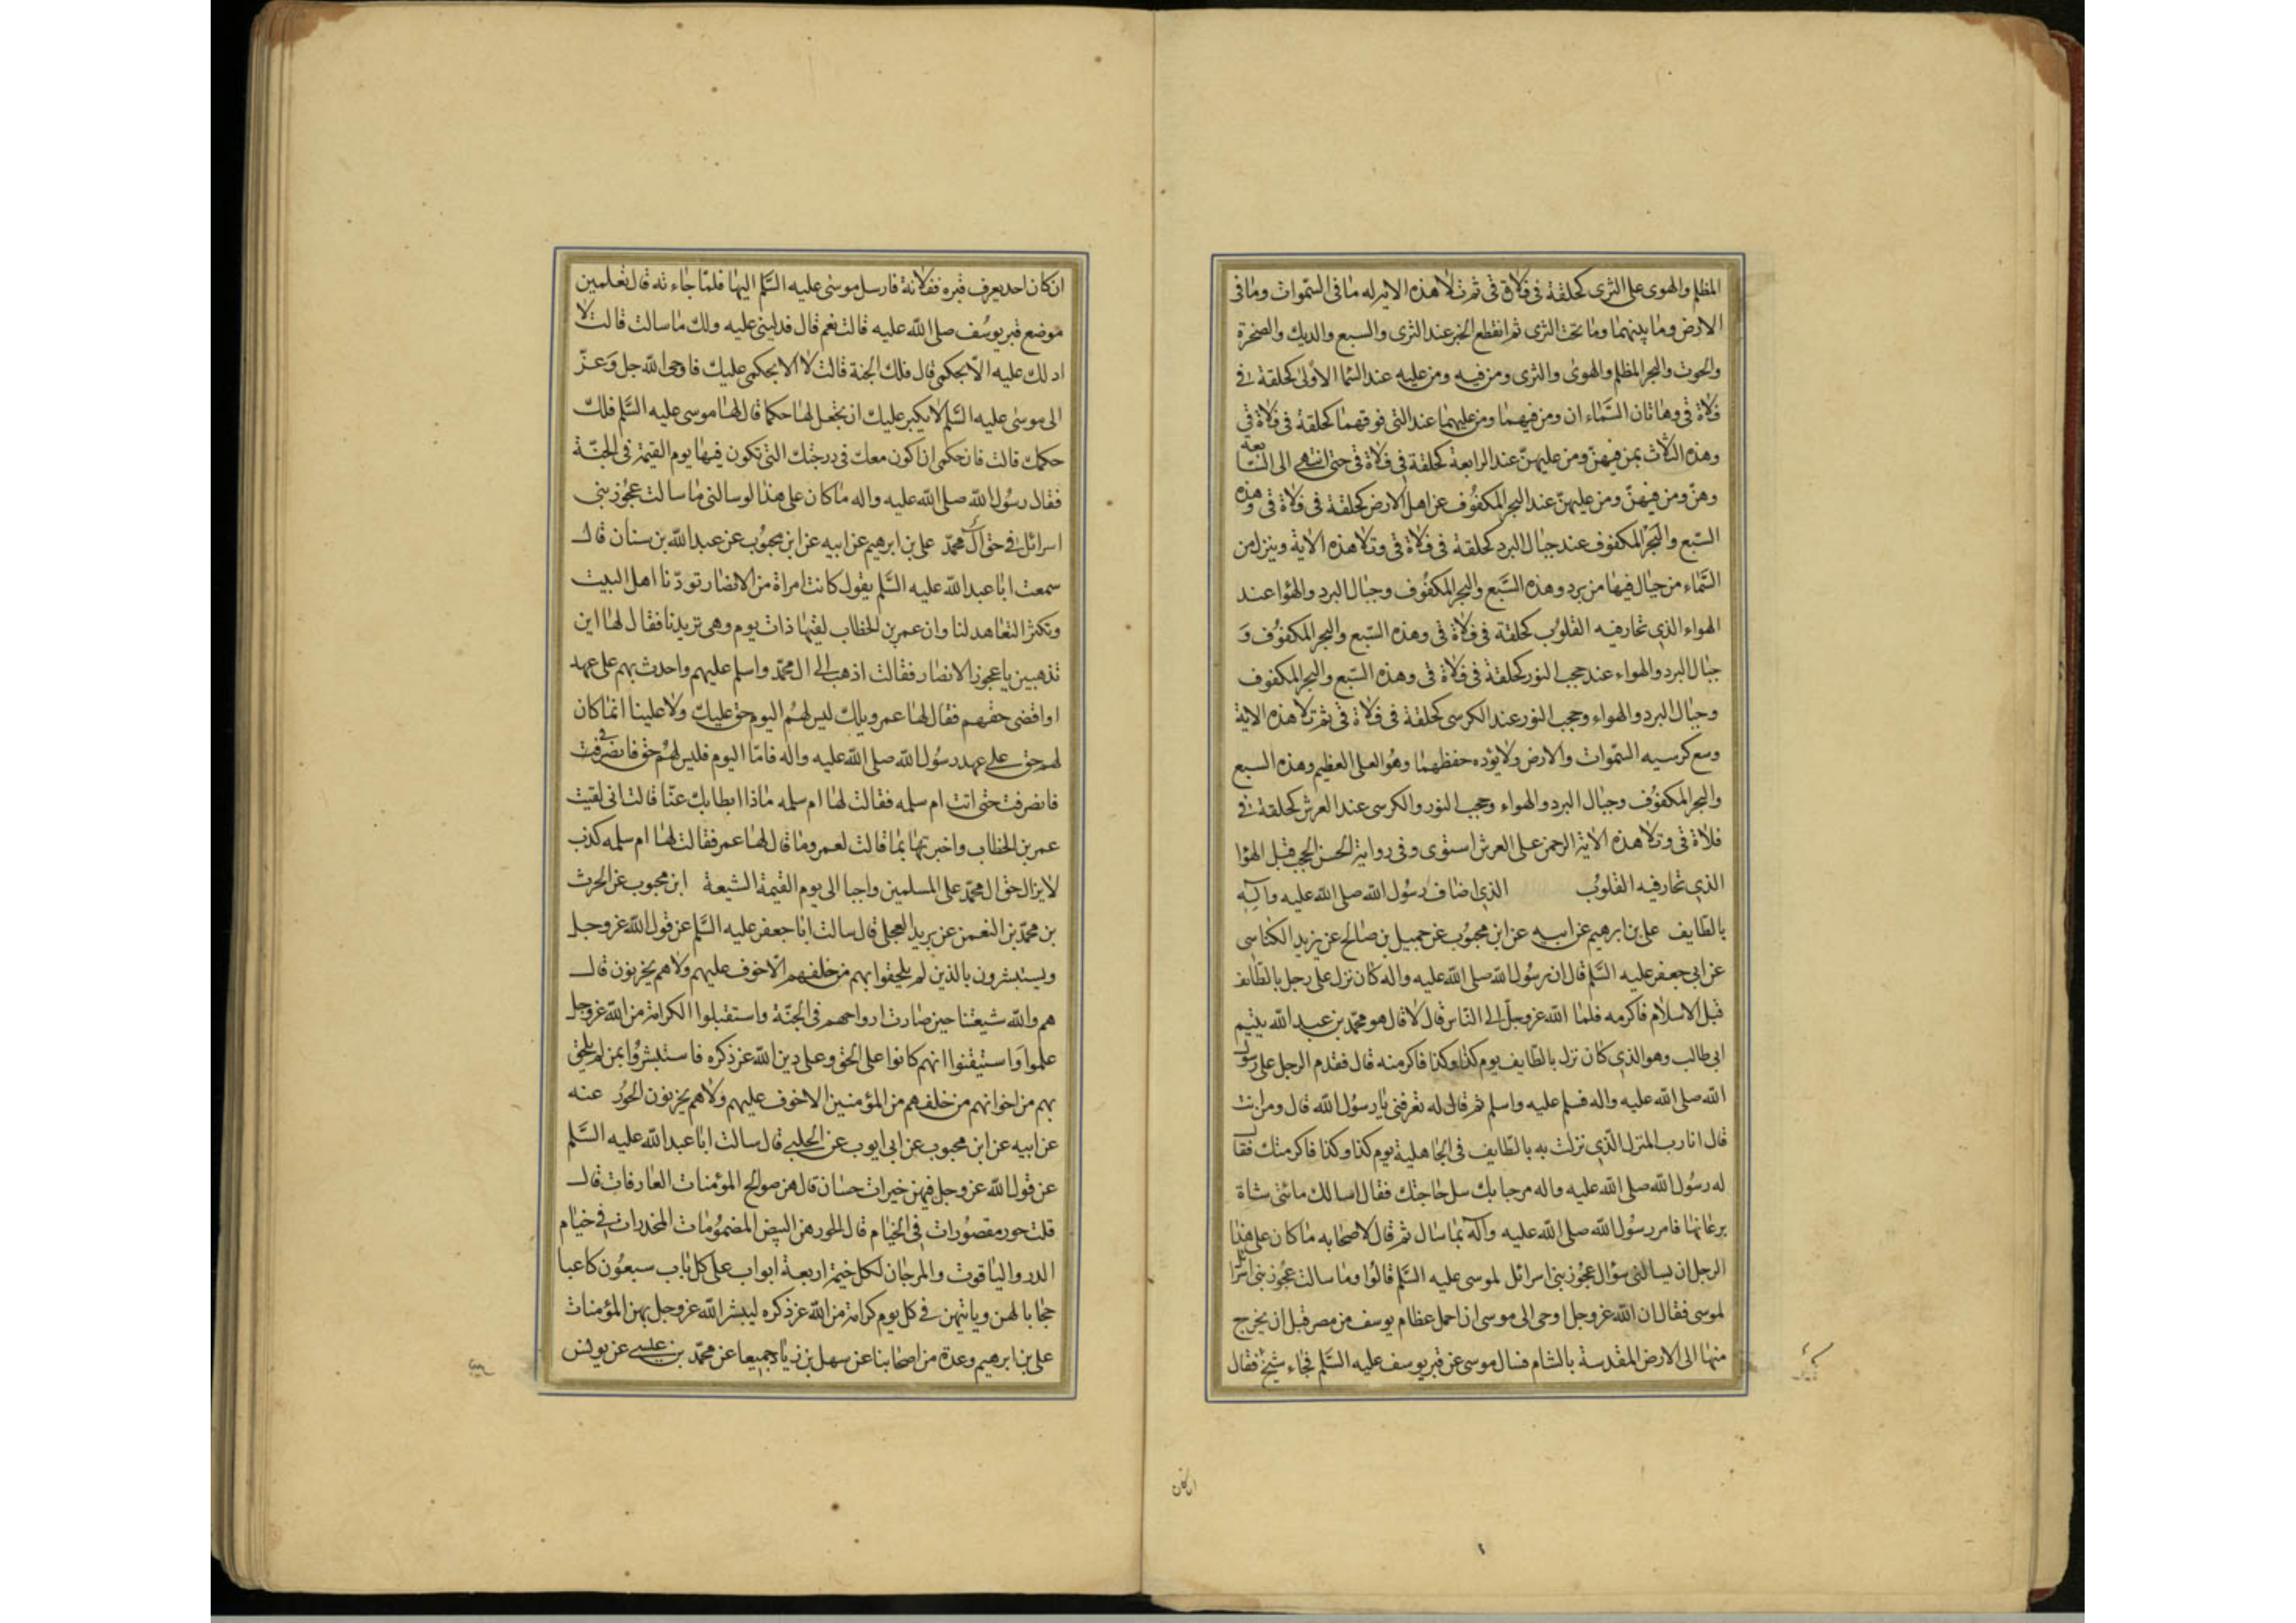 المظلم والهوى على الثرى كحلقة فى فلاة قى ثم تلا هذه الاية له ما فى السموات وما فى
الارض وما بينهما وما تحت الثرى ثم انقطع الخبر عند الثرى والسبع والديك والصخرة
والحوت والبحر المظلم والهوى والثرى ومن فيه ومن عليه عند السما الاولى كحلقة فى
فلاة قى وهاتان السماء ان ومن فيهما ومن عليهما عند التى فوقهما كحلقة فى فلاة قى
وهذه الثلاث بمن فيهن ومن عليهن عند الرابعة كحلقة فى فلاة قى حتى انتهى الى السابعة
وهن ومن فيهن ومن عليهن عند البحر المكفوف عن اهل الارض كحلقة فى فلاة قى وهذه
السبع والبحر المكفوف عند جبال البرد كحلقة فى فلاة قى وتلا هذه الاية وينزل من
السماء من جبال فيها من برد وهذه السبع والبحر المكفوف وجبال البرد والهوا عند
الهواء الذى تحار فيه القلوب كحلقة فى فلاة قى وهذه السبع والبحر المكفوف و
جبال البرد والهواء عند حجب النور كحلقة فى فلاة قى وهذه السبع والبحر المكفوف
وجبال البرد والهواء وحجب النور عند الكرسى كحلقة فى فلاة قى ثم تلا هذه الاية
وسع كرسيه السموات والارض ولا يؤده حفظهما وهو العلى العظيم وهذه السبع
والبحر المكفوف وجبال البرد والهواء وحجب النور والكرسى عند العرش كحلقة فى
فلاة قى وتلا هذه الاية الرحمن على العرش استوى وفى رواية الحسن الحجب قبل الهوا
الذى تحار فيه القلوب الذى اضاف رسول الله صلى الله عليه واله
بالطايف على بن ابرهيم عن ابيه عن ابن محبوب عن جميل بن صالح عن يزيد الكناسى
عن ابى جعفر عليه السلم قال ان رسول الله صلى الله عليه واله كان نزل على رجل بالطائف
قبل الاسلام فاكرمه فلما الله عز وجل الى الناس قال لا قال هو محمد بن عبد الله يتيم
ابى طالب وهو الذى كان نزل بالطايف يوم كذا وكذا فاكرمته قال فقدم الرجل على رسول
الله صلى الله عليه واله فسلم عليه واسلم ثم قال له تعرفنى يا رسول الله قال ومن انت
قال انا رب المنزل الذى نزلت به بالطايف فى الجاهلية يوم كذا وكذا فاكرمتك فقال
له رسول الله صلى الله عليه واله مرحبا بك سل حاجتك فقال اسالك مائتى شاة
برعاتها فامر رسول الله صلى الله عليه واله بما سال ثم قال لاصحابه ما كان على هذا
الرجل ان يسالنى سؤال عجوز بنى اسرائل لموسى عليه السلم قالوا وما سالت عجوز بنى اسرائل
لموسى فقال ان الله عز وجل اوحى الى موسى ان احمل عظام يوسف من مصر قبل ان يخرج
منها الى الارض المقدسة بالشام فسال موسى عن قبر يوسف عليه السلم فجاء شيخ فقال
ان كان
ان كان احد يعرف قبره ففلانة فارسل موسى عليه السلم اليها فلما جاءته قال تعلمين
موضع قبر يوسف صلى الله عليه قالت نعم قال فدلينى عليه ولك ما سالت قالت لا
ادلك عليه الا بحكمى قال فلك الجنة قالت لا الا بحكمى عليك فاوحى الله جل وعز
الى موسى عليه السلم لا يكبر عليك ان تجعل لها حكما قال لها موسى عليه السلم فلك
حكمك قالت فان حكمى ان اكون معك فى درجتك التى تكون فيها يوم القيمة فى الجنة
فقال رسول الله صلى الله عليه واله ما كان على هذا لو سالنى ما سالت عجوز بنى
اسرائل فى حق ال محمد على بن ابرهيم عن ابيه عن ابن محبوب عن عبد الله بن سنان قال
سمعت ابا عبد الله عليه السلم يقول كانت امراة من الانصار تودنا اهل البيت
وتكثر التعاهد لنا وان عمر بن الخطاب لقيها ذات يوم وهى تريدنا فقال لها اين
تذهبين يا عجوز الانصار فقالت اذهب الى ال محمد واسلم عليهم واحدث بهم على عهد
او اقضى حقهم فقال لها عمر ويلك ليس لهم اليوم حق عليك ولا علينا انما كان
لهم حق على عهد رسول الله صلى الله عليه واله فاما اليوم فليس لهم حق فانصرفى
فانصرفت حتى اتت ام سلمه فقالت لها ام سلمه ماذا ابطا بك عنا قالت انى لقيت
عمر بن الخطاب واخبرتها بما قالت لعمر وما قال لها عمر فقالت لها ام سلمه كذب
لا يزال حق ال محمد على المسلمين واجبا الى يوم القيمة الشيعة ابن محبوب عن الحرث
بن محمد بن النعمن عن بريد العجلى قال سالت ابا جعفر عليه السلم عن قول الله عز وجل
ويستبشرون بالذين لم يلحقوا بهم من خلفهم الا خوف عليهم ولا هم يحزنون قال
هم والله شيعتنا حين صارت ارواحهم فى الجنة واستقبلوا الكرامة من الله عز وجل
علموا واستيقنوا انهم كانوا على الحق وعلى دين الله عز ذكره فاستبشروا بمن لم يلحق
بهم من اخوانهم من خلفهم من المؤمنين الا خوف عليهم ولا هم يحزنون الحور عنه
عن ابيه عن ابن محبوب عن ابى ايوب عن الحلبى قال سالت ابا عبد الله عليه السلم
عن قول الله عز وجل فيهن خيرات حسان قال هن صوالح المؤمنات العارفات قال
قلت حور مقصورات فى الخيام قال الحور هن البيض المضمومات المخدرات فى خيام
الدر والياقوت والمرجان لكل خيمة اربعة ابواب على كل باب سبعون كاعبا
حجابا لهن وياتيهن فى كل يوم كرامة من الله عز ذكره ليبشر الله عز وجل بهن المؤمنات
على بن ابرهيم وعدة من اصحابنا عن سهل بن زياد جميعا عن محمد بن عيسى عن يونس